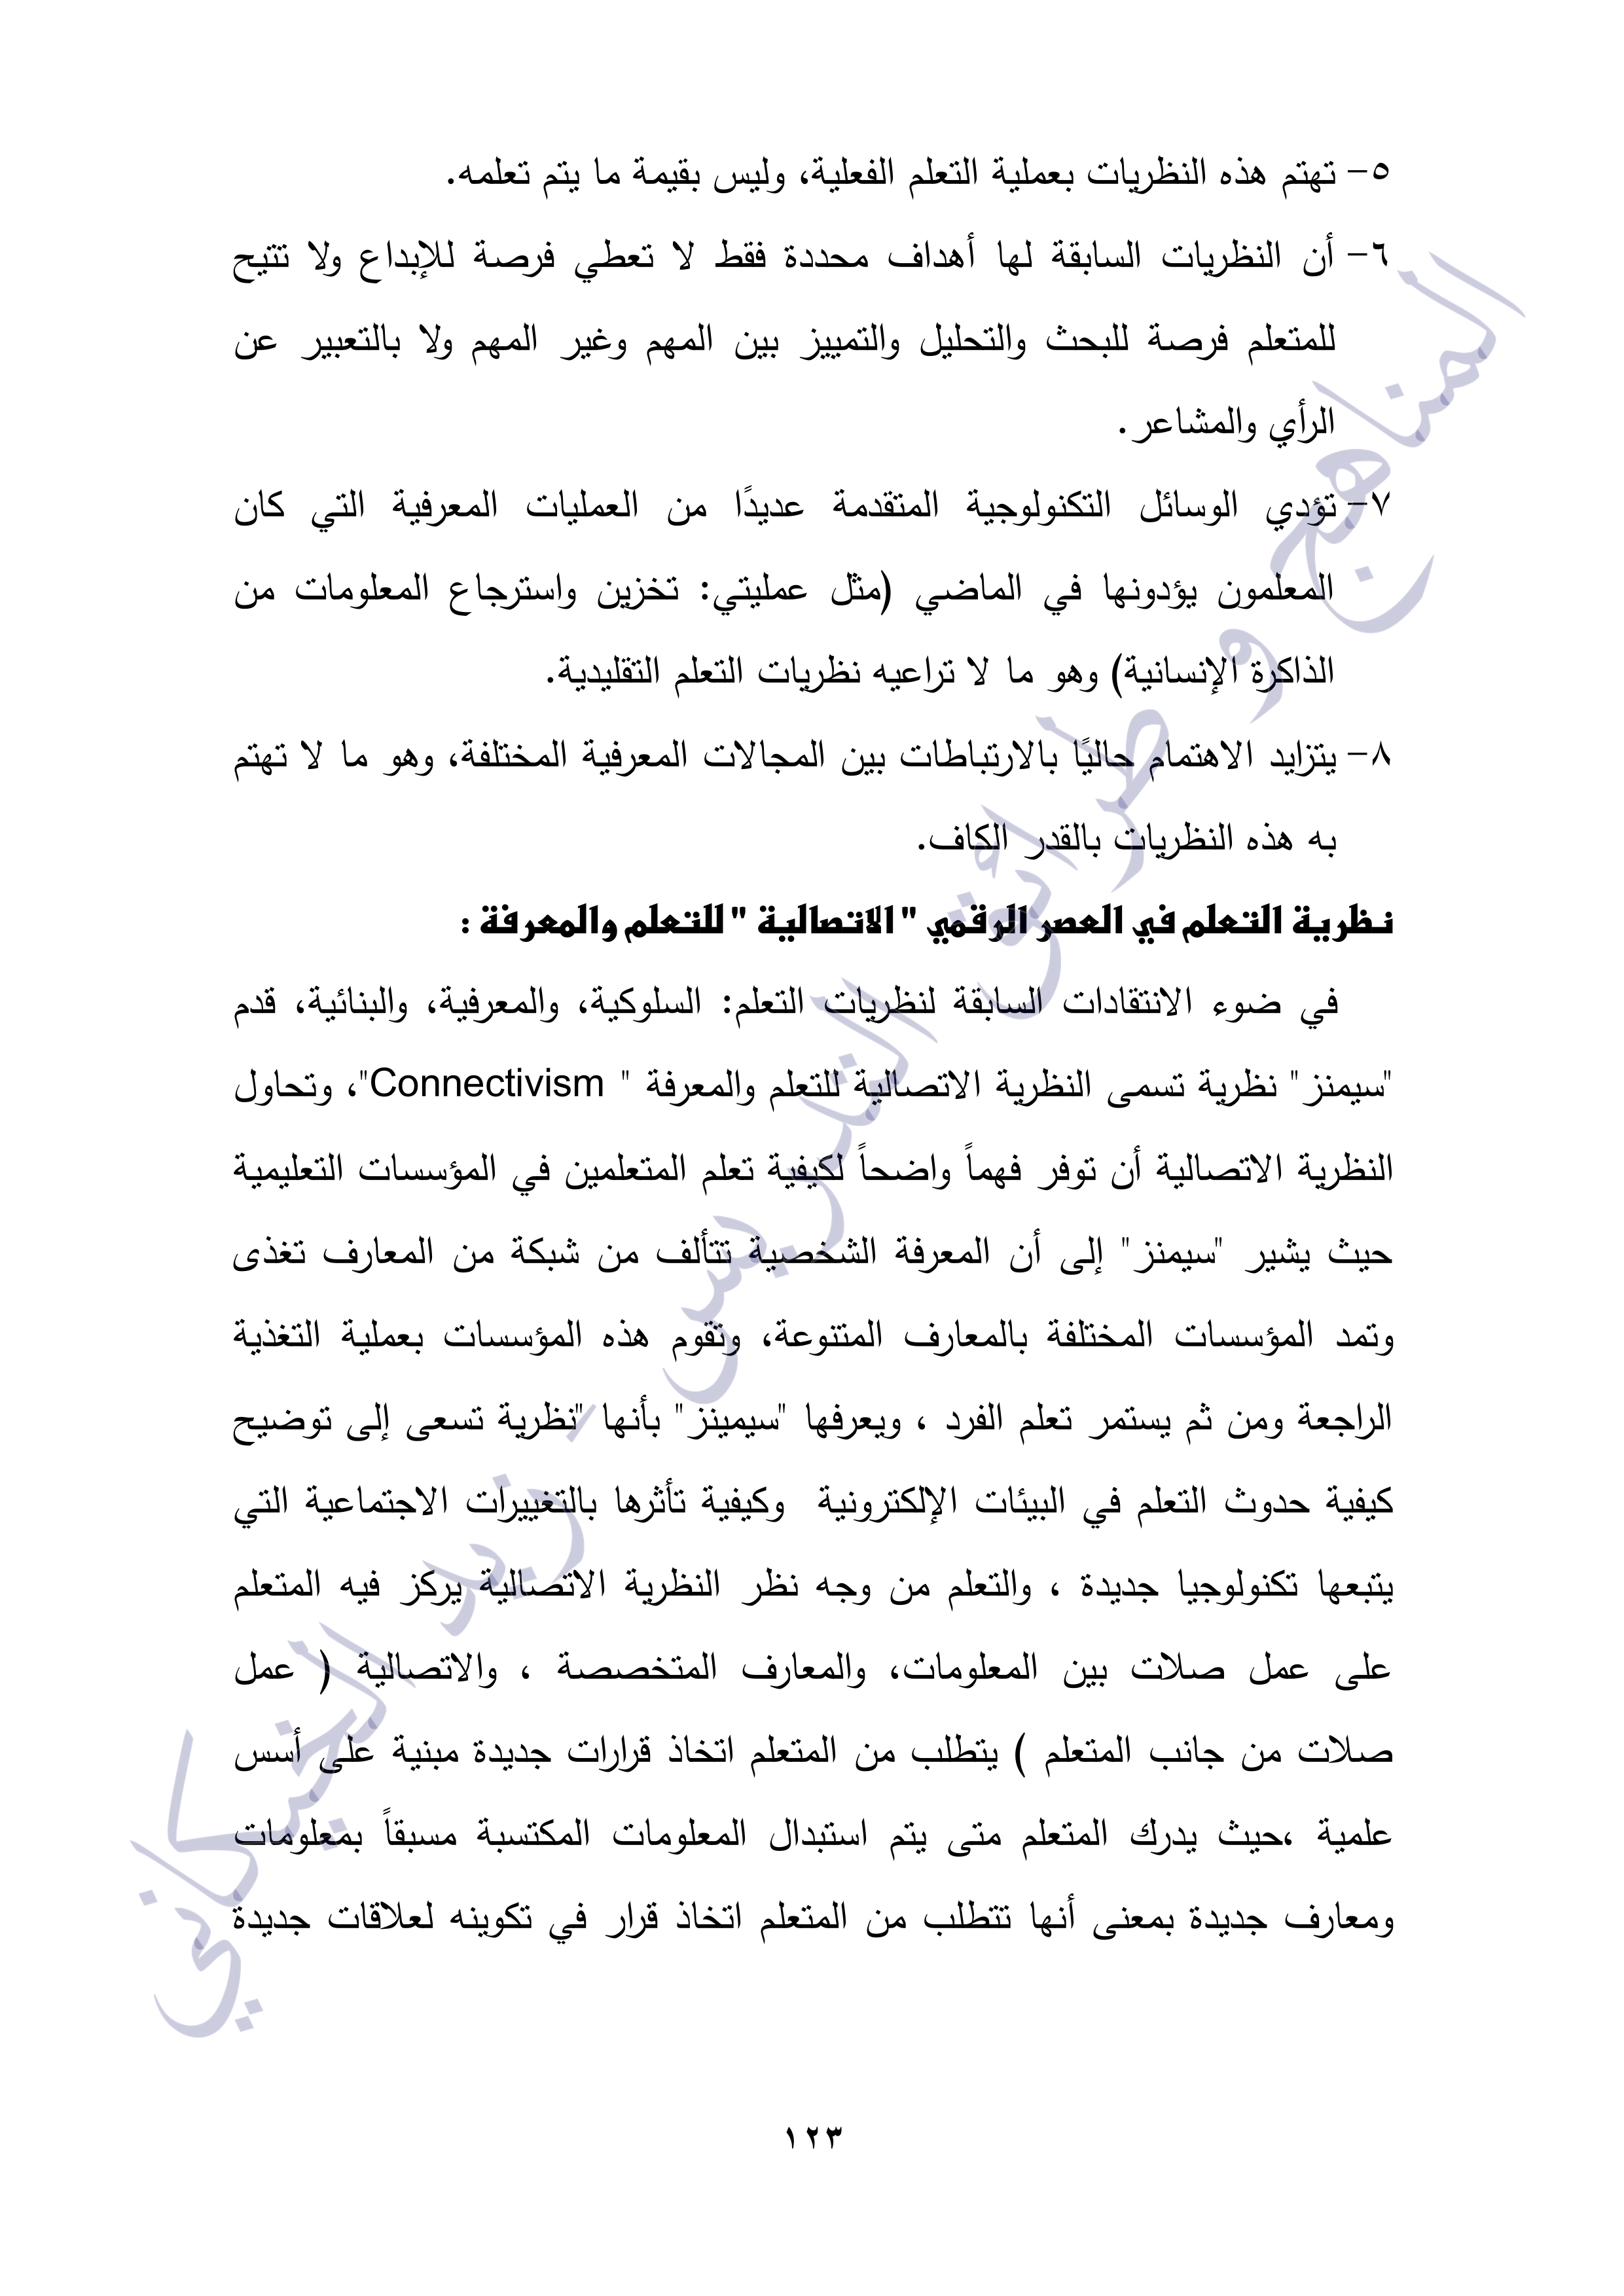 ٥- تهتم هذه النظريات بعملية التعلم الفعلية، وليس بقيمة ما يتم تعلمه.
٦- أن النظريات السابقة لها أهداف محددة فقط لا تعطي فرصة للإبداع ولا تتيح
للمتعلم فرصة للبحث والتحليل والتمييز بين المهم وغير المهم ولا بالتعبير عن
الرأي والمشاعر.
٧- تؤدي الوسائل التكنولوجية المتقدمة عديدًا من العمليات المعرفية التي كان
المعلمون يؤدونها في الماضي (مثل عمليتي: تخزين واسترجاع المعلومات من
الذاكرة الإنسانية) وهو ما لا تراعيه نظريات التعلم التقليدية.
٨- يتزايد الاهتمام حاليًا بالارتباطات بين المجالات المعرفية المختلفة، وهو ما لا تهتم
به هذه النظريات بالقدر الكاف.
نظرية التعلم في العصر الرقمي " الاتصالية " للتعلم والمعرفة :
في ضوء الانتقادات السابقة لنظريات التعلم: السلوكية، والمعرفية، والبنائية، قدم
"سيمنز" نظرية تسمى النظرية الاتصالية للتعلم والمعرفة " Connectivism"، وتحاول
النظرية الاتصالية أن توفر فهماً واضحاً لكيفية تعلم المتعلمين في المؤسسات التعليمية
حيث يشير "سيمنز" إلى أن المعرفة الشخصية تتألف من شبكة من المعارف تغذى
وتمد المؤسسات المختلفة بالمعارف المتنوعة، وتقوم هذه المؤسسات بعملية التغذية
الراجعة ومن ثم يستمر تعلم الفرد ، ويعرفها "سيمينز" بأنها "نظرية تسعى إلى توضيح
كيفية حدوث التعلم في البيئات الإلكترونية وكيفية تأثرها بالتغييرات الاجتماعية التي
يتبعها تكنولوجيا جديدة ، والتعلم من وجه نظر النظرية الاتصالية يركز فيه المتعلم
على عمل صلات بين المعلومات، والمعارف المتخصصة ، والاتصالية ( عمل
صلات من جانب المتعلم ) يتطلب من المتعلم اتخاذ قرارات جديدة مبنية على أسس
علمية ،حيث يدرك المتعلم متى يتم استبدال المعلومات المكتسبة مسبقاً بمعلومات
ومعارف جديدة بمعنى أنها تتطلب من المتعلم اتخاذ قرار في تكوينه لعلاقات جديدة
المناهج و طرائق التدريس - زيد الخيكاني
١٢٣